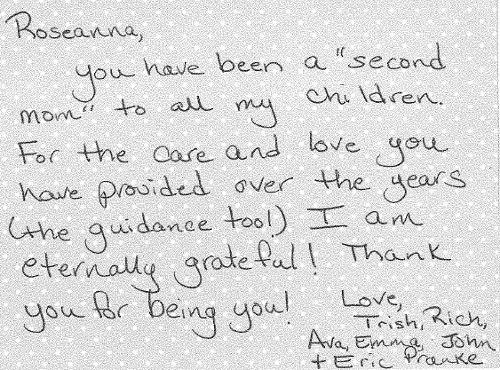 Roseanna,
you have been a "second
mom" to all my children.
For the care and love you
have provided over the years
(the guidance too!) I am
eternally grateful! Thank
you for being you!
Love,
Trish, Rich,
Ava, Emma, John
+ Eric Pranke